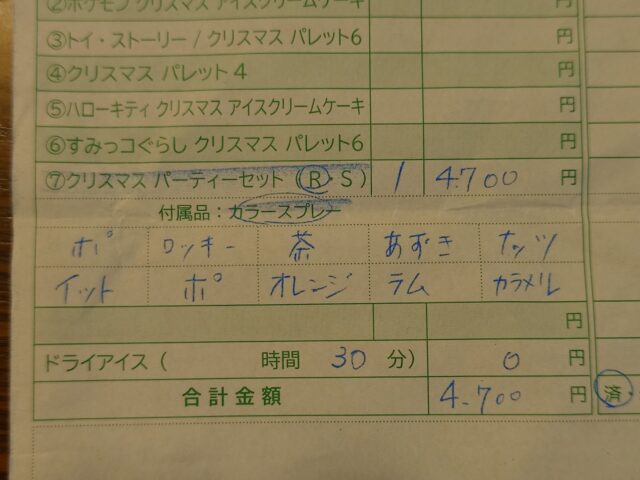 ②ポケモン クリスマス アイスクリームケーキ 円
③トイ・ストーリー / クリスマス パレット6 円
④クリスマス パレット4 円
⑤ハローキティ クリスマス アイスクリームケーキ 円
⑥すみっコぐらし クリスマス パレット6 円
⑦クリスマス パーティーセット (R・S) 1 4.700 円
付属品:カラースプレー
ポ ロッキー 茶 あずき ナッツ
イット ポ オレンジ ラム カラメル
円
ドライアイス( 時間 30 分) 0 円
合計金額 4.700 円 済